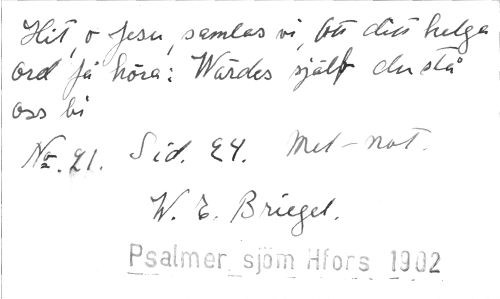 Hit, o Jesu, samlas vi, Att ditt helga
ord få höra: Wärdes själf du stå
oss bi
No. 21. Sid. 24. Mel-not.
W. E. Briegel.
Psalmer sjöm Hfors 1902